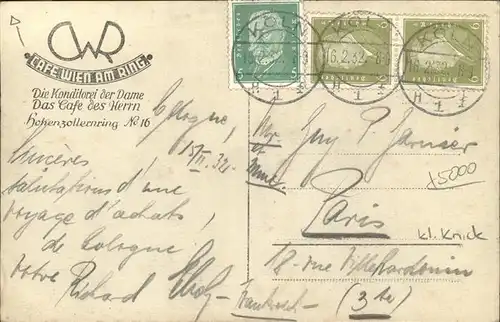 CWR
CAFE WIEN AM RING
Die Konditorei der Dame
Das Cafe des Herrn
Hohenzollernring No 16
Cologne,
15/II. 32.
Sincères
salutations d'une
voyage d'achats,
de Cologne
votre
Richard
KÖLN
16.2.32
KÖLN
16.2.32
5
6
6
Mr et Mme.
Garnier
Paris
kl. Knick
18 rue Villehardouin
Frankreich
(3e)